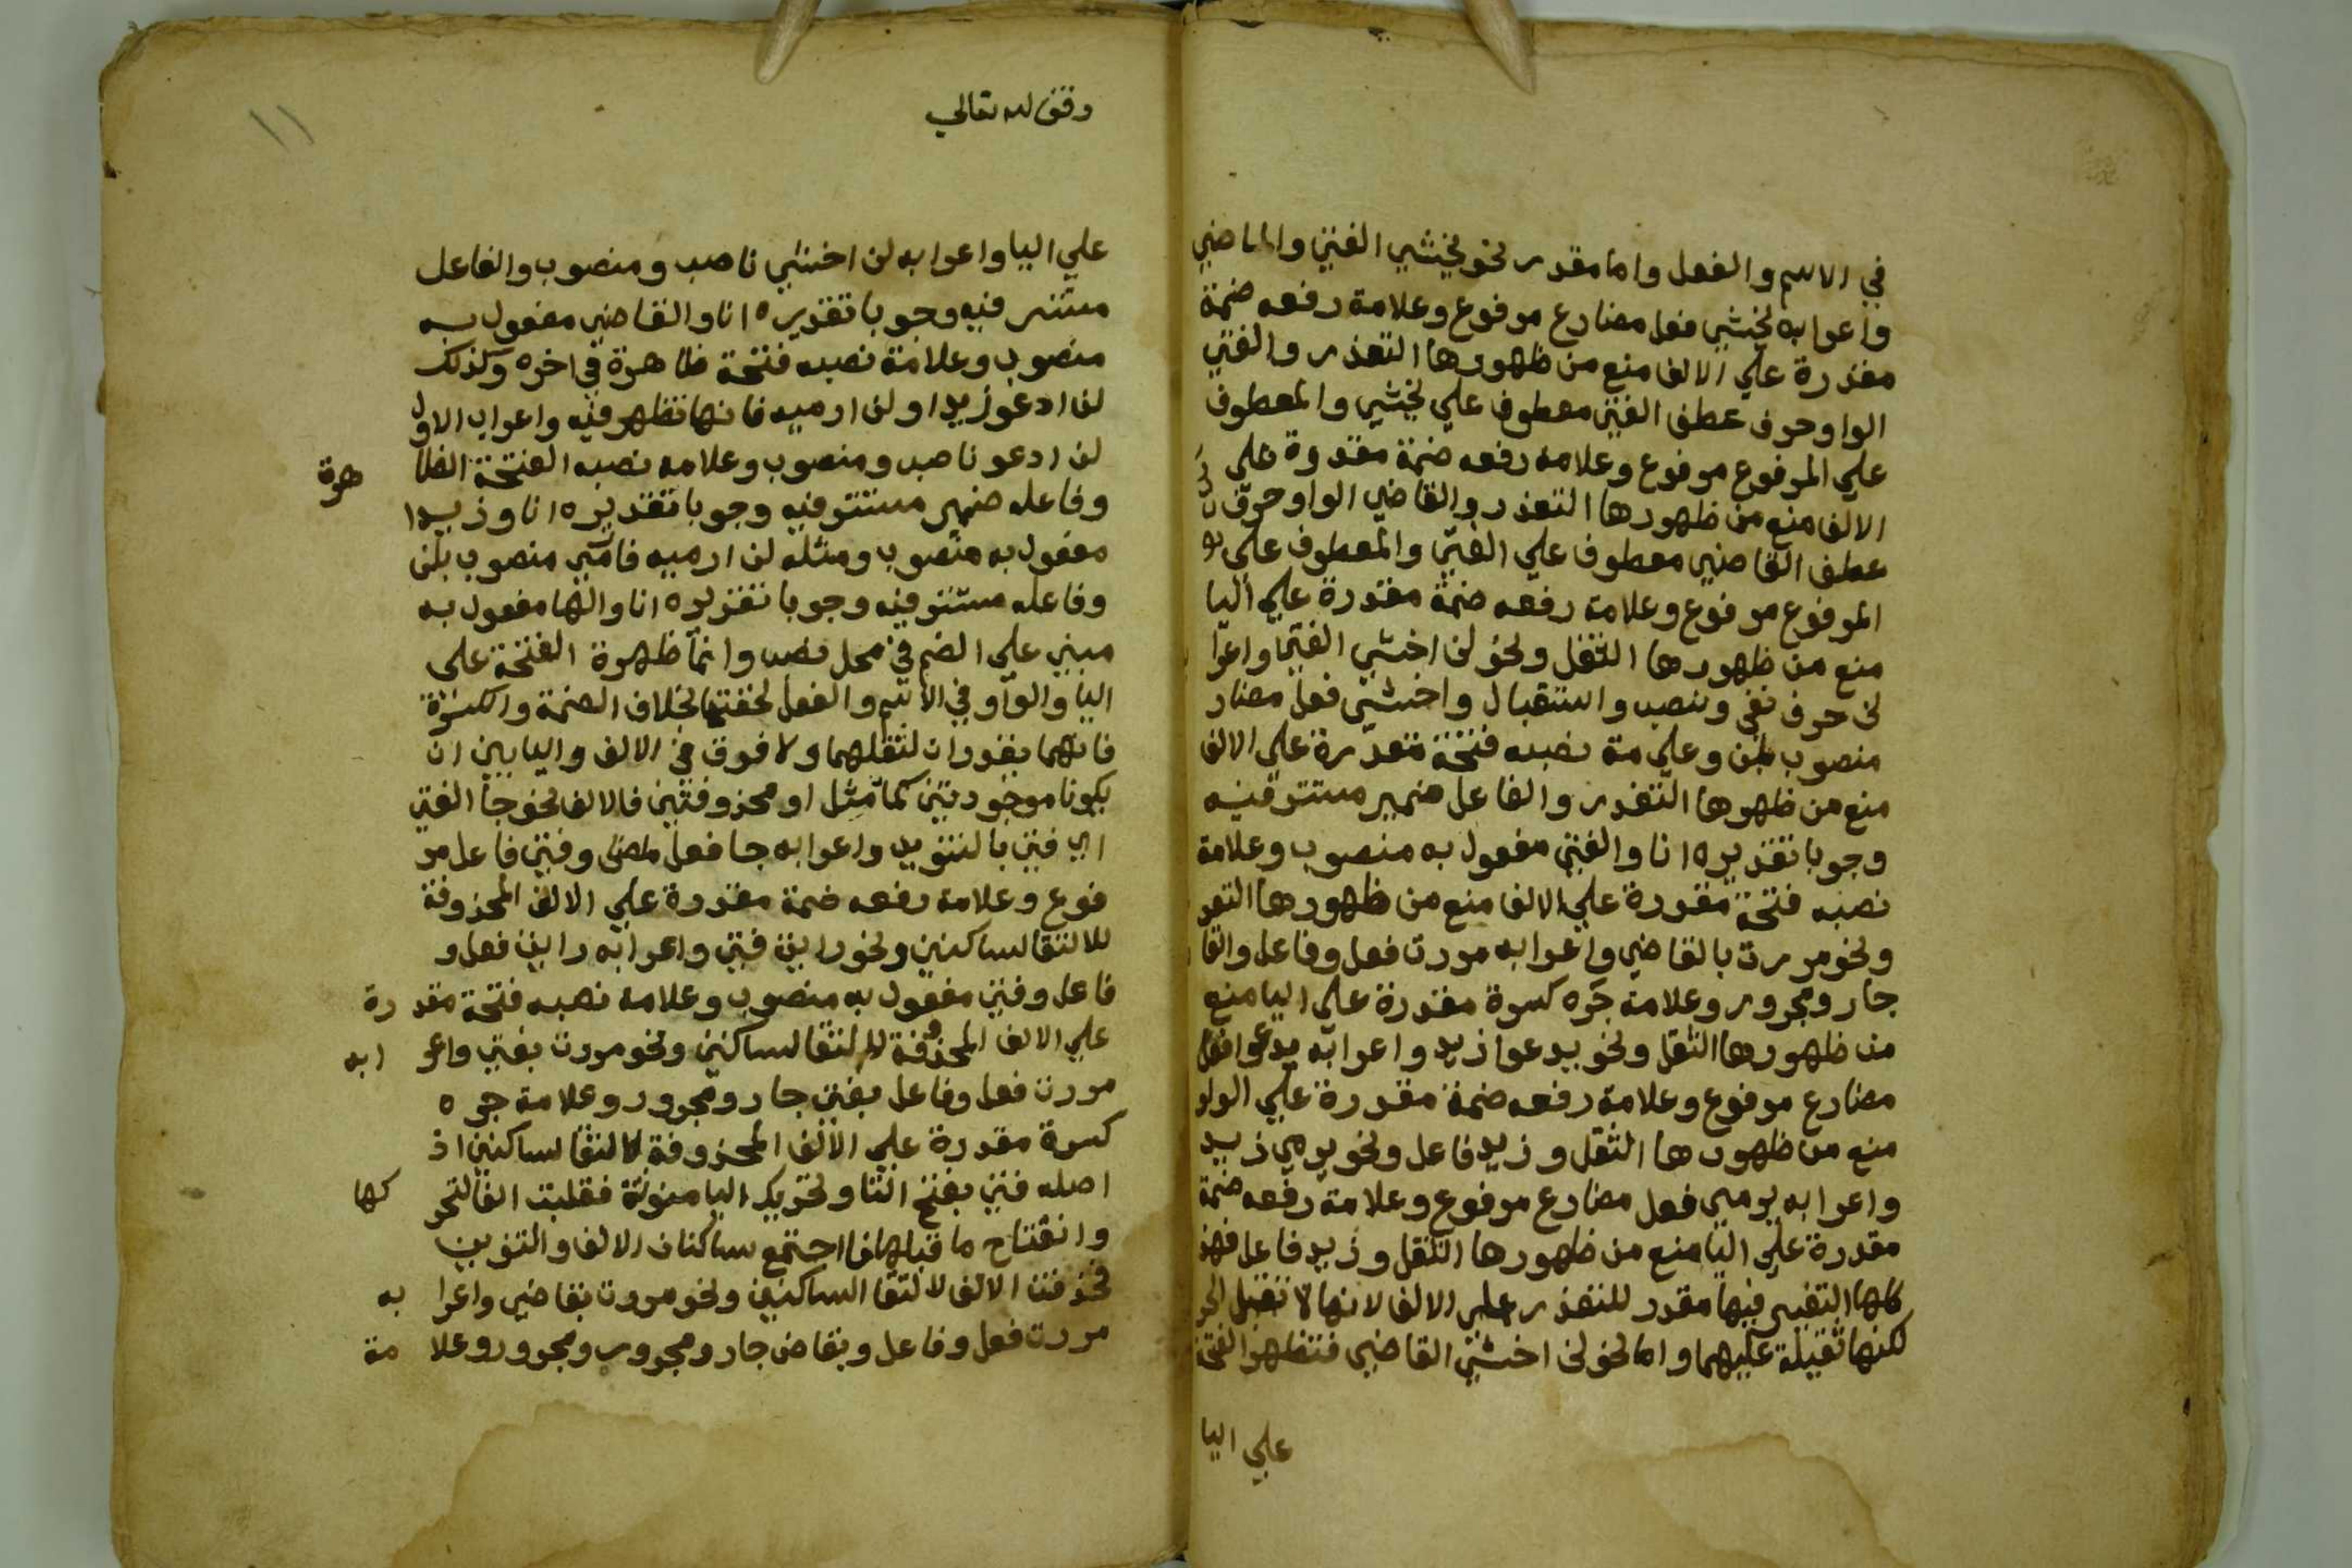 في الاسم والفعل واما مقدر نحو يخشي الفتي والقاضي
واعرابه يخشي فعل مضارع مرفوع وعلامة رفعه ضمة
مقدرة علي الالف منع من ظهورها التعذر والفتي
الواو حرف عطف الفتي معطوف علي يخشي والمعطوف
علي المرفوع مرفوع وعلامه رفعه ضمة مقدرة علي
الالف منع من ظهورها التعذر والقاضي الواو حرف
عطف القاضي معطوف علي الفتي والمعطوف علي
المرفوع مرفوع وعلامة رفعه ضمة مقدرة علي اليا
منع من ظهورها الثقل ونحو لن اخشي الفتي واعرا
لن حرف نفي ونصب واستقبال واخشي فعل مضار
منصوب بلن وعلي مة نصبه فتحة مقدرة علي الالف
منع من ظهوها التعذر والفاعل ضمير مستتر فيه
وجوبا تقديره انا والفتي مفعول به منصوب وعلامة
نصبه فتحة مقدرة علي الالف منع من ظهورها التعد
ونحو مررت بالقاضي واعرابه مررت فعل وفاعل والقا
جار ومجرور وعلامة جره كسرة مقدرة علي اليا منع
من ظهورها الثقل ونحو يدعوا زيد واعرابه يدعوا فعل
مضارع مرفوع وعلامة رفعه ضمة مقدرة علي الواو
منع من ظهورها الثقل وزيد فاعل ونحو يرمي زيد
واعرابه يرمي فعل مضارع مرفوع وعلامة رفعه ضمة
مقدرة علي اليا منع من ظهورها الثقل وزيد فاعل فهذ
كلها التغيير فيها مقدر للتعذر علي الالف لانها لا تقبل الحر
لكنها ثقيلة عليهما واما نحو لن اخشي القاضي فتظهر الفتحة
علي اليا
وقف لله تعالي
١١
علي اليا واعرابه لن اخشي ناصب ومنصوب والفاعل
مستتر فيه وجوبا تقديره انا والقاضي مفعول به
منصوب وعلامة نصبه فتحة ظاهرة في اخره وكذلك
لن ادعو زيدا ولن ارميه فانها تظهر فيه واعراب الاول
لن ادعو ناصب ومنصوب وعلامه نصبه الفتحة الظا هرة
وفاعله ضمير مستتر فيه وجوبا تقديره انا وزيدا
مفعول به منصوب ومثله لن ارميه فارمي منصوب بلن
وفاعله مستتر فيه وجوبا تقديره انا والها مفعول به
مبني علي الضم في محل نصب وانما ظهرة الفتحة علي
اليا والواو في الاسم والفعل لخفتها بخلاف الضمة والكسرة
فانهما يقدران لثقلهما ولا فرق في الالف واليا بين ان
يكونا موجودتين كما مثل او محذوفتين فالالف نحو جا الفتي
اي فتي بالتنوين واعرابه جا فعل ماضي وفتي فاعل مر
فوع وعلامة رفعه ضمة مقدرة علي الالف المحذوفة
للالتقا لساكنين ونحو رايت فتي واعرابه رايت فعل و
فاعل وفتي مفعول به منصوب وعلامة نصبه فتحة مقد رة
علي الالف المحذوفة لالتقا لساكنين ونحو مررت بفتي واعر ابه
مررت فعل وفاعل بفتي جار ومجرور وعلامة جره
كسرة مقدرة علي الالف المحذوفة لالتقا لساكنين اذ
اصله فتي بفتح التا وتحريك اليا منونة فقلبت الفا لتحر كها
وانفتاح ما قبلها فاجتمع ساكنان الالف والتنوين
فحذفت الالف لالتقا الساكنين ونحو مررت بقاضي واعرا به
مررت فعل وفاعل وبقاض جار ومجرور ومجرور وعلا مة